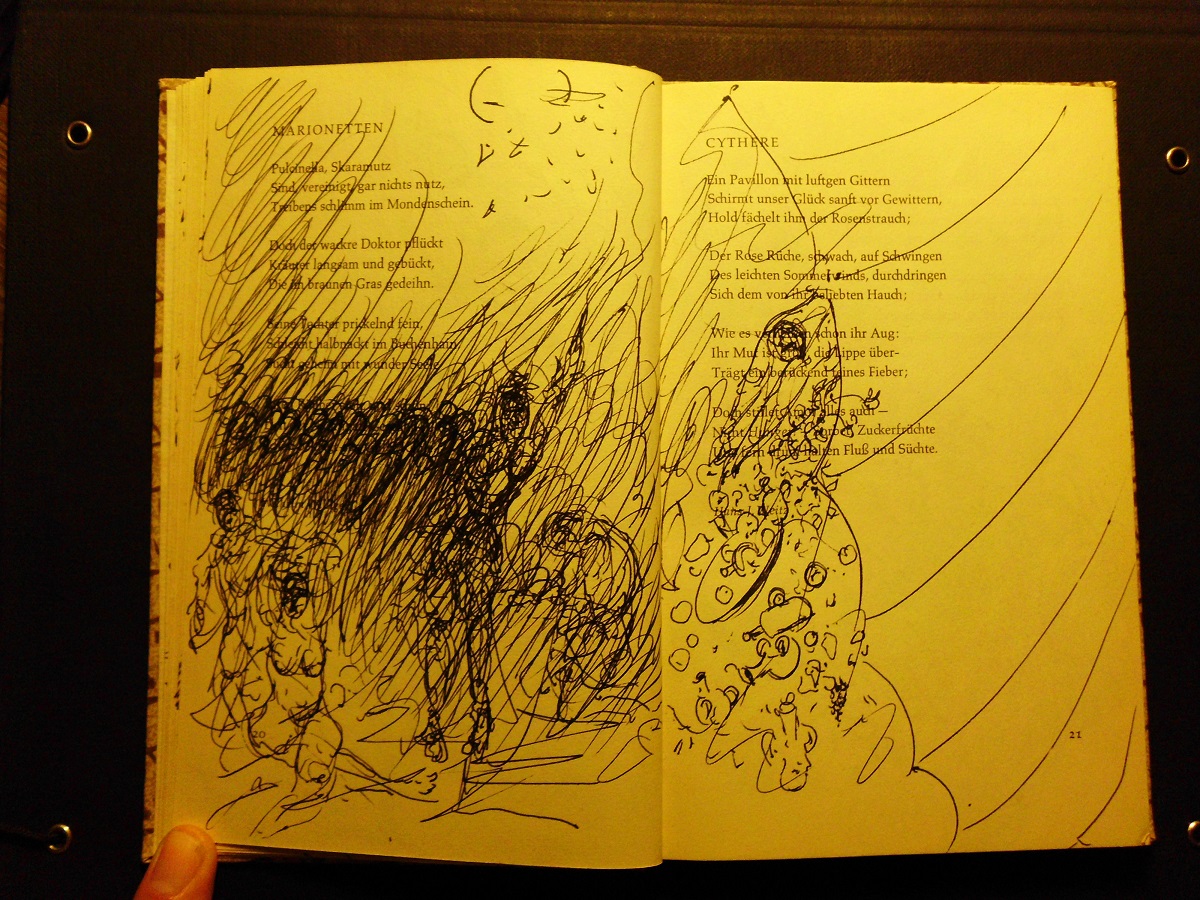 MARIONETTEN
Pulcinella, Skaramutz
Sind, vereinigt, gar nichts nutz,
Treibens schlimm im Mondenschein.
Doch der wackre Doktor pflückt
Kräuter langsam und gebückt,
Die im braunen Gras gedeihn.
Seine Tochter prickelnd fein,
Schleicht halbnackt im Buchenhain,
geheim mit wunder Seele
20
CYTHERE
Ein Pavillon mit luftgen Gittern
Schirmt unser Glück sanft vor Gewittern,
Hold fächelt ihm der Rosenstrauch;
Der Rose Rüche, schwach, auf Schwingen
Des leichten Sommerwinds, durchdringen
Sich dem von ihr beliebten Hauch;
Wie es schon ihr Aug:
Ihr Mut ist die Lippe über-
Trägt ein berückend feines Fieber;
Doch stillet Amor alles auch —
Nicht Zuckerfrüchte
halten Fluß und Süchte.
Hans J.
21